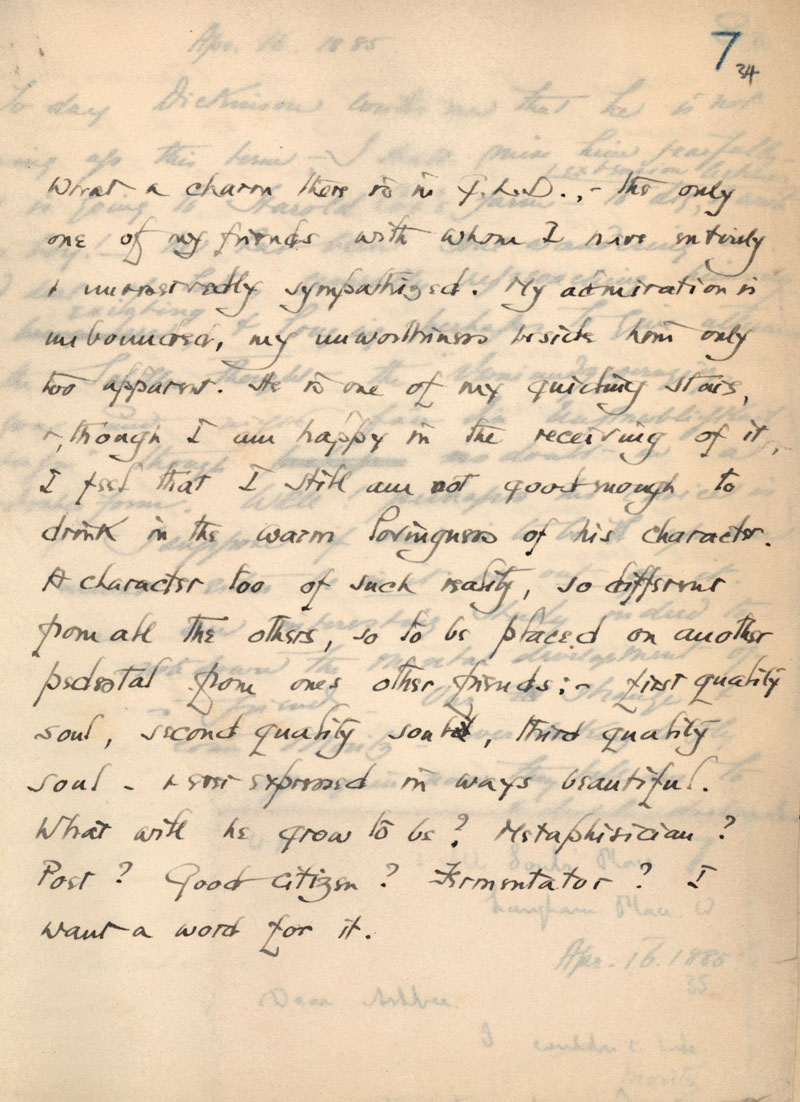 7
34
What a charm there is in G.L.D., - the only
one of my friends with whom I have entirely
& unreservedly sympathized. My admiration is
unbounded, my unworthiness beside him only
too apparent. He is one of my guiding stars,
&, though I am happy in the receiving of it,
I feel that I still am not good enough to
drink in the warm lovingness of his character.
A character too of such reality, so different
from all the others, so to be placed on another
pedestal from ones other friends: - first quality
soul, second quality soul, third quality
soul - & ever expressed in ways beautiful.
What will he grow to be? Metaphisician?
Poet? Good citizen? Fermentator? I
want a word for it.